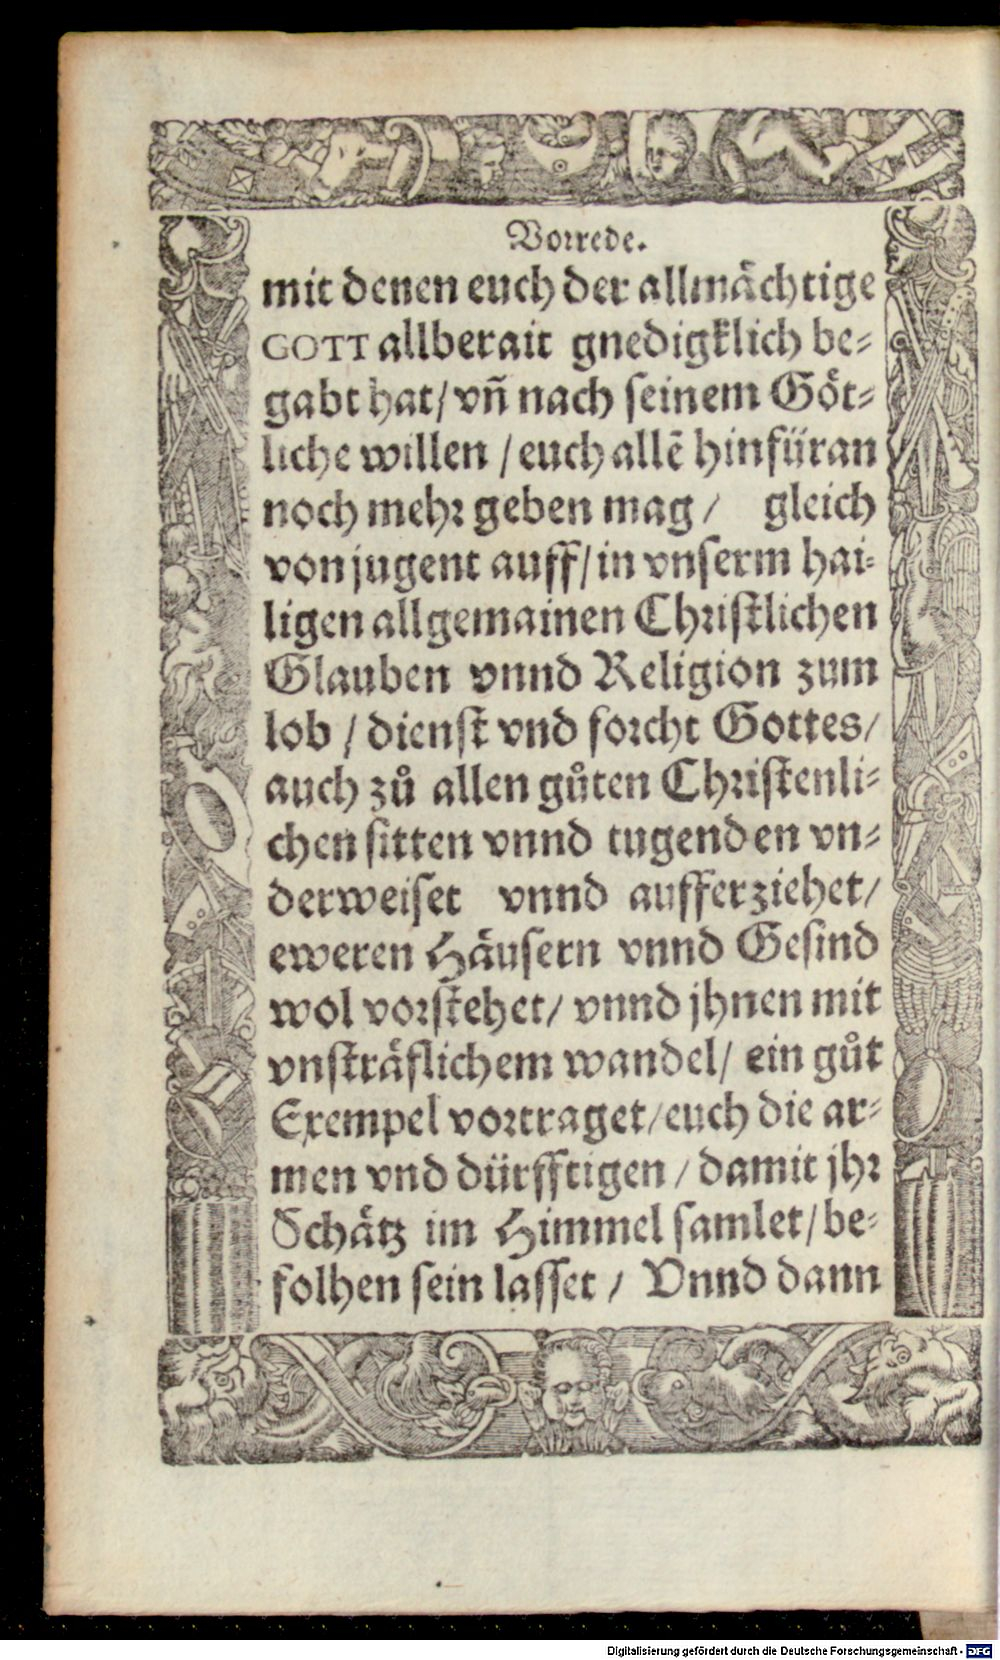 Vorrede.
mit denen euch der allmächtige
GOTT allberait gnedigklich be-
gabt hat/ vñ nach seinem Göt-
liche willen / euch allẽ hinfüran
noch mehr geben mag / gleich
von jugent auff/ in vnserm hai-
ligen allgemainen Christlichen
Glauben vnnd Religion zum
lob / dienst vnd forcht Gottes/
auch zů allen gůten Christenli-
chen sitten vnnd tugenden vn-
derweiset vnnd aufferziehet/
eweren Häusern vnnd Gesind
wol vorstehet/ vnnd jhnen mit
vnsträflichem wandel/ ein gůt
Exempel vortraget/ euch die ar-
men vnd dürfftigen / damit jhr
Schätz im Himmel samlet/ be-
folhen sein lasset / Vnnd dann
Digitalisierung gefördert durch die Deutsche Forschungsgemeinschaft - DFG